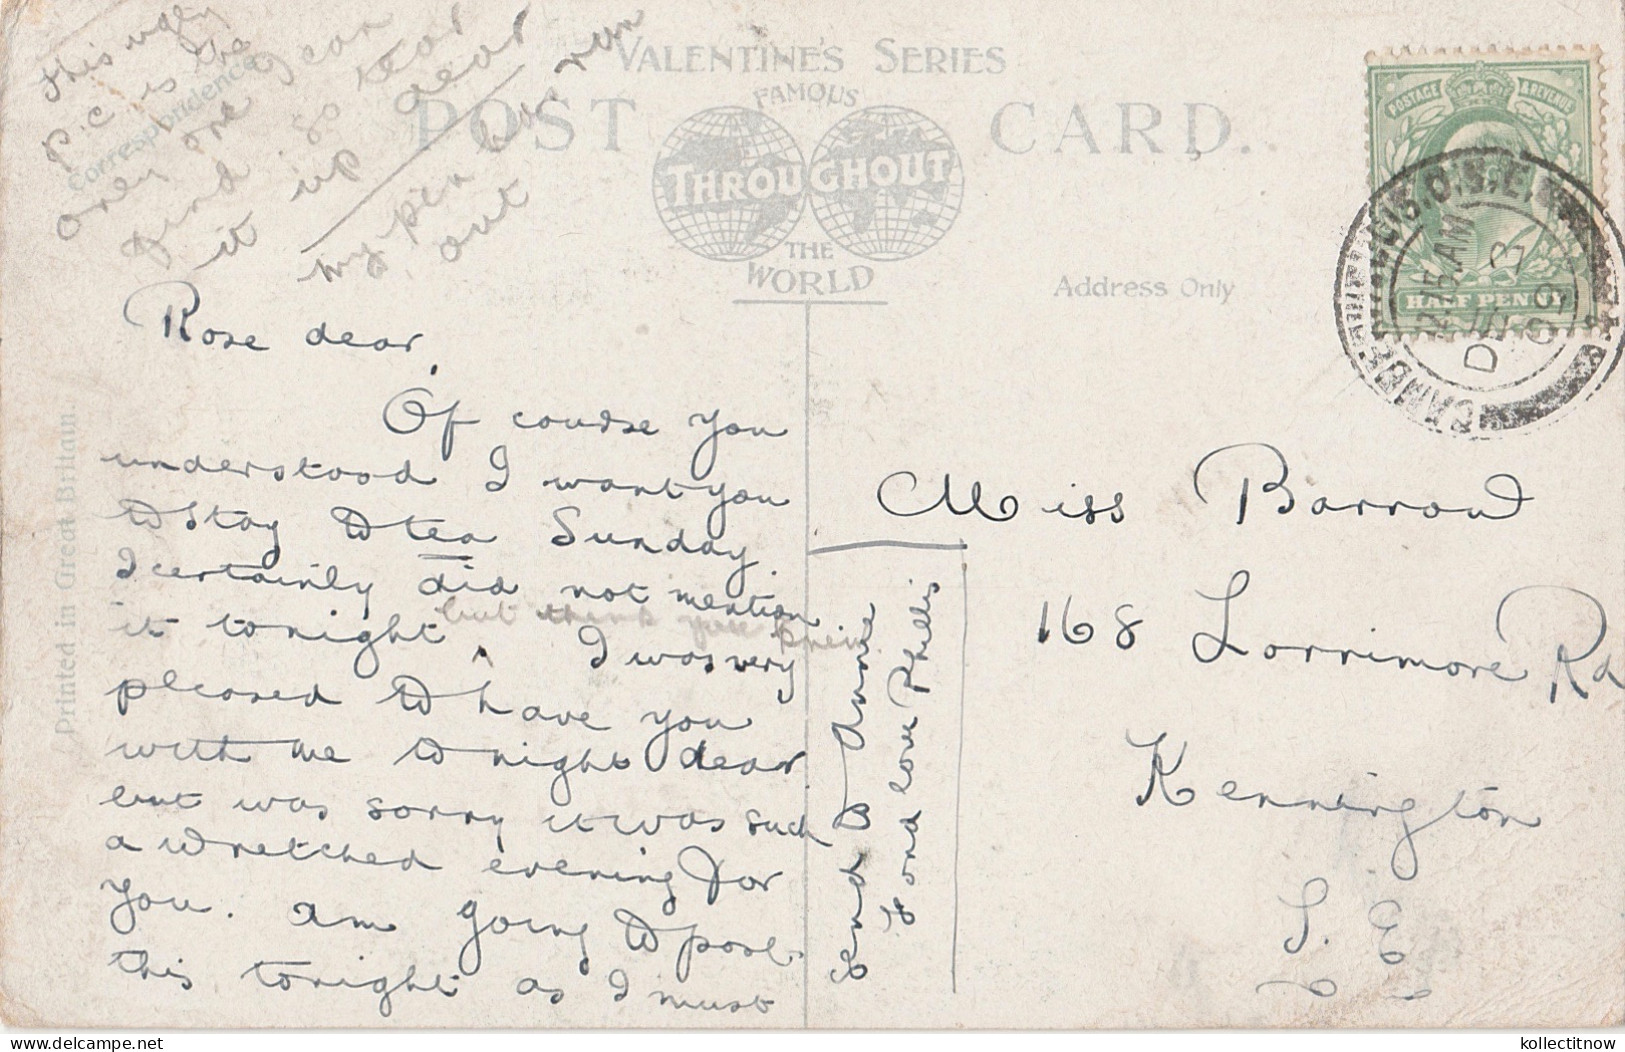 This ugly
p.c is the
only one I can
find so tear
it up dear
my pen has run
out
Correspondence
VALENTINE'S SERIES
FAMOUS
POST CARD.
THROUGHOUT
THE
WORLD
Address Only
POSTAGE & REVENUE
HALF PENNY
CAMBERWELL B.O.S.E.
12.15 AM
DE 10
09
Printed in Great Britain.
Rose dear,
Of course you
understood I want you
to stay to tea Sunday.
I certainly did not mention
it tonight but think you knew
I was very
pleased to have you
with me tonight dear
but was sorry it was such
a wretched evening for
you. am going to post
this tonight as I must
send B Annie
Fond love Phyllis
Miss Barrow
168 Lorrimore Rd
Kennington
S. E
kollectitnow